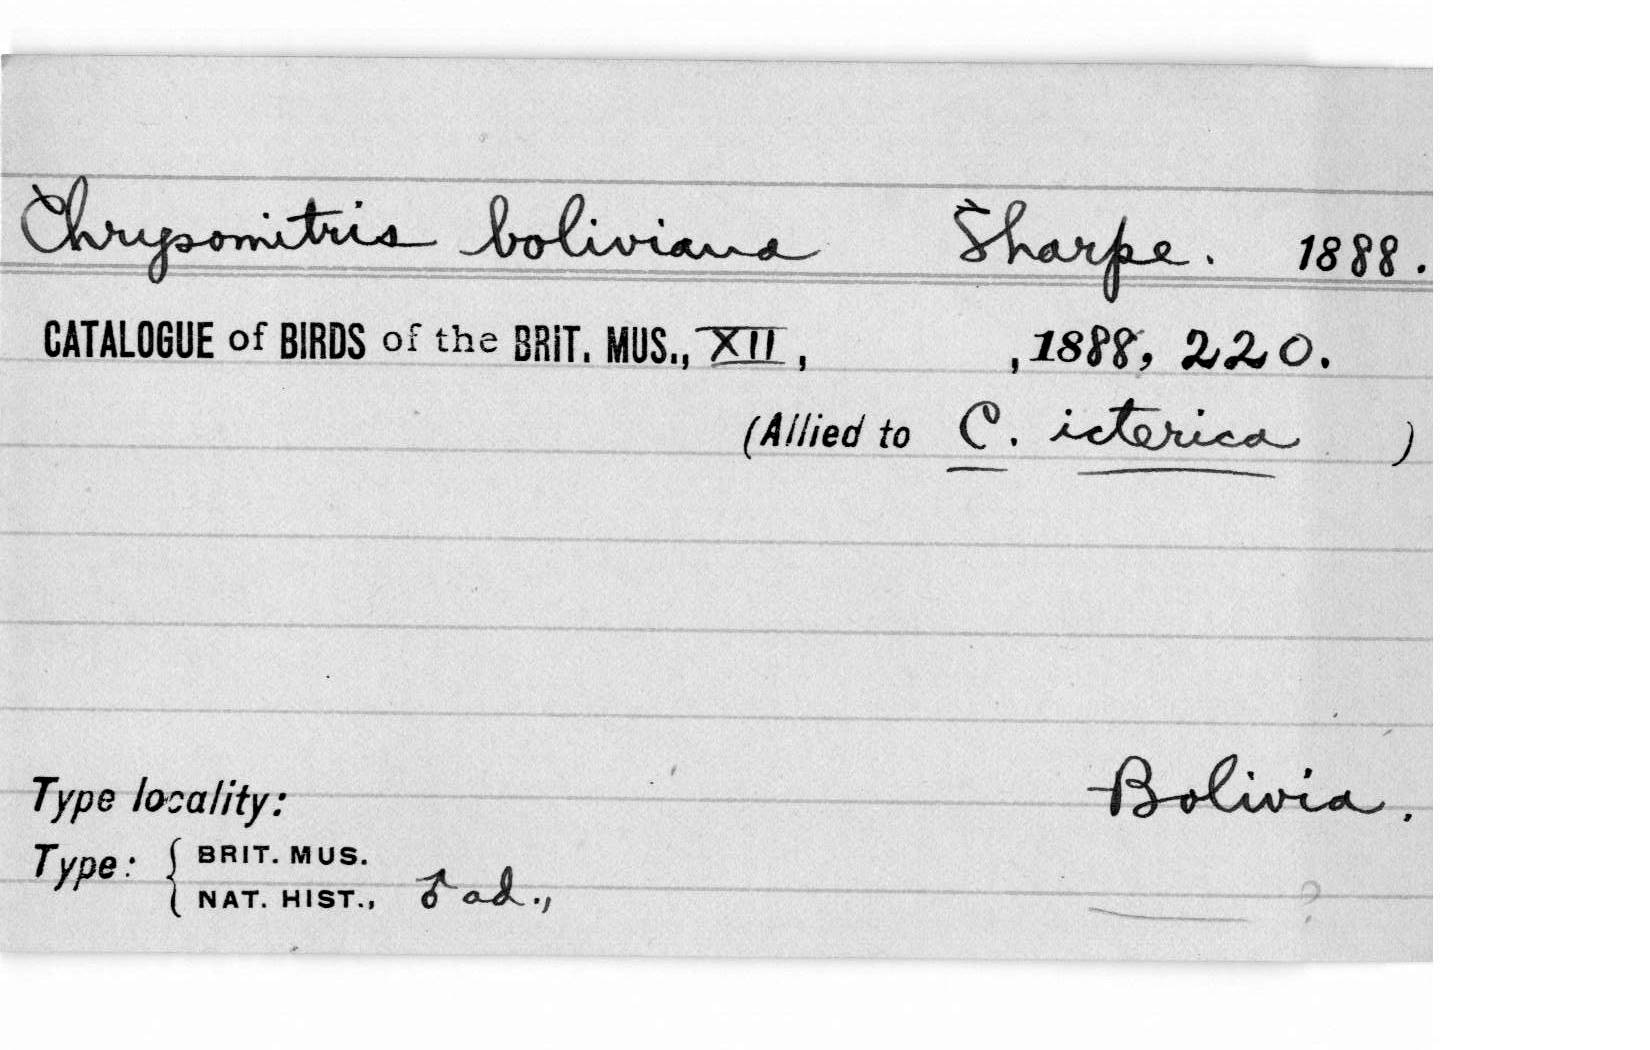 Chrysomitris boliviana Sharpe. 1888.
CATALOGUE of BIRDS of the BRIT. MUS., XII, , 1888, 220.
(Allied to C. icterica )
Type locality: Bolivia.
Type: { BRIT. MUS.
NAT. HIST., ♂ ad., ?